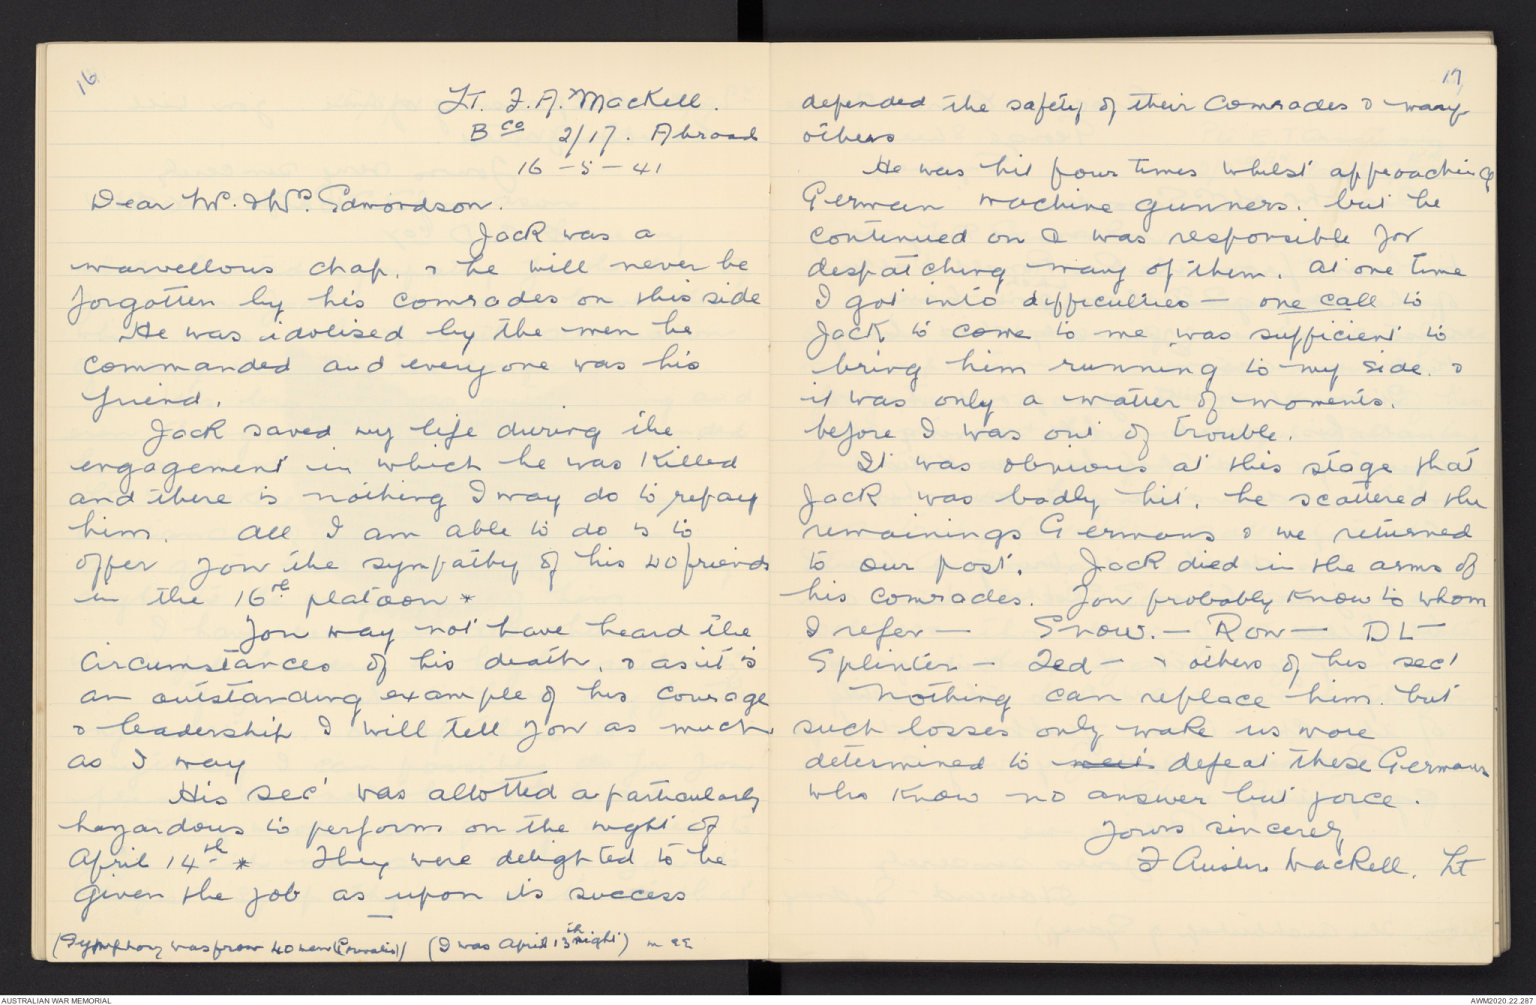 16
Lt. F. A. Mackell.
B Co 2/17. Abroad
16-5-41
Dear Mr. & Mrs. Edmondson.
Jack was a
marvellous chap, & he will never be
forgotten by his comrades on this side
He was idolised by the men he
commanded and everyone was his
friend.
Jack saved my life during the
engagement in which he was killed
and there is nothing I may do to repay
him. All I am able to do is to
offer you the sympathy of his 40 friends
in the 16th platoon *
You may not have heard the
circumstances of his death, & as it is
an outstanding example of his courage
& leadership I will tell you as much
as I may
His sec' was allotted a particularly
hazardous to perform on the night of
April 14th * They were delighted to be
given the job as upon its success
(Symphony was from 40 men (Privates)) (I was April 13th night)
17
depended the safety of their comrades & many
others
He was hit four times whilst approaching
German machine gunners. but he
continued on & was responsible for
despatching many of them. At one time
I got into difficulties - one call to
Jack to come to me was sufficient to
bring him running to my side. &
it was only a matter of moments.
before I was out of trouble.
It was obvious at this stage that
Jack was badly hit. he scattered the
remainings Germans & we returned
to our post. Jack died in the arms of
his comrades. You probably know to whom
I refer - Snow. - Ron - DL -
Splinter - Ted - & others of his sec'
Nothing can replace him. but
such losses only make us more
determined to defeat these Germans
who know no answer but force.
Yours sincerely
F Austin Mackell. Lt
AUSTRALIAN WAR MEMORIAL
AWM2020.22.267